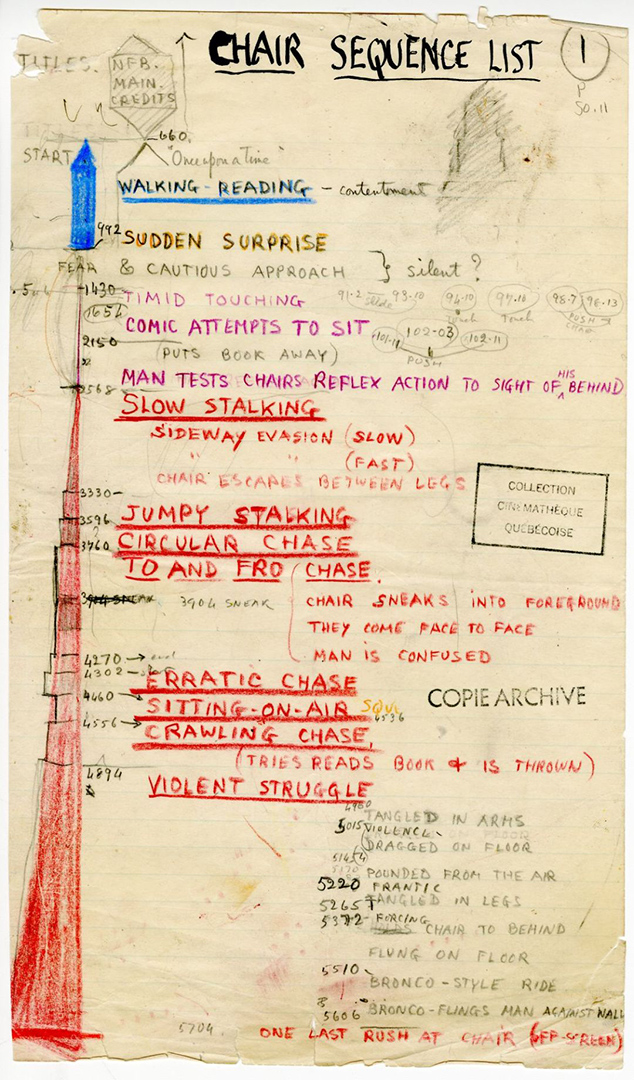 CHAIR SEQUENCE LIST
1
P
50.11
TITLES.
NFB.
MAIN.
CREDITS
660.
START
"Once upon a time"
WALKING-READING - contentment
992
SUDDEN SURPRISE
FEAR & CAUTIOUS APPROACH } silent?
1430 TIMID TOUCHING
91-2 93-10 94-10 97-10 98-7 98-13
Touch Touch PUSH
1654 COMIC ATTEMPTS TO SIT
101-11 102-03 102-11
PUSH
2150
(PUTS BOOK AWAY)
2568 MAN TESTS CHAIRS REFLEX ACTION TO SIGHT OF HIS BEHIND
SLOW STALKING
SIDEWAY EVASION (SLOW)
" " (FAST)
CHAIR ESCAPES BETWEEN LEGS
3330-
COLLECTION
CINÉMATHÈQUE
QUÉBÉCOISE
3596 JUMPY STALKING
3760 CIRCULAR CHASE
TO AND FRO CHASE.
3904 SNEAK
CHAIR SNEAKS INTO FOREGROUND
THEY COME FACE TO FACE
MAN IS CONFUSED
4270 →
4302 -
ERRATIC CHASE
4460
SITTING-ON-AIR
4536
COPIE ARCHIVE
4556
CRAWLING CHASE,
(TRIES READS BOOK & IS THROWN)
4894
VIOLENT STRUGGLE
4980
TANGLED IN ARMS
5015 VIOLENCE
DRAGGED ON FLOOR
POUNDED FROM THE AIR
5220 FRANTIC
5265 TANGLED IN LEGS
5372 - FORCING
CHAIR TO BEHIND
FLUNG ON FLOOR
5510
BRONCO-STYLE RIDE
5606 BRONCO-FLINGS MAN AGAINST WALL
5704. ONE LAST RUSH AT CHAIR (OFF-SCREEN)